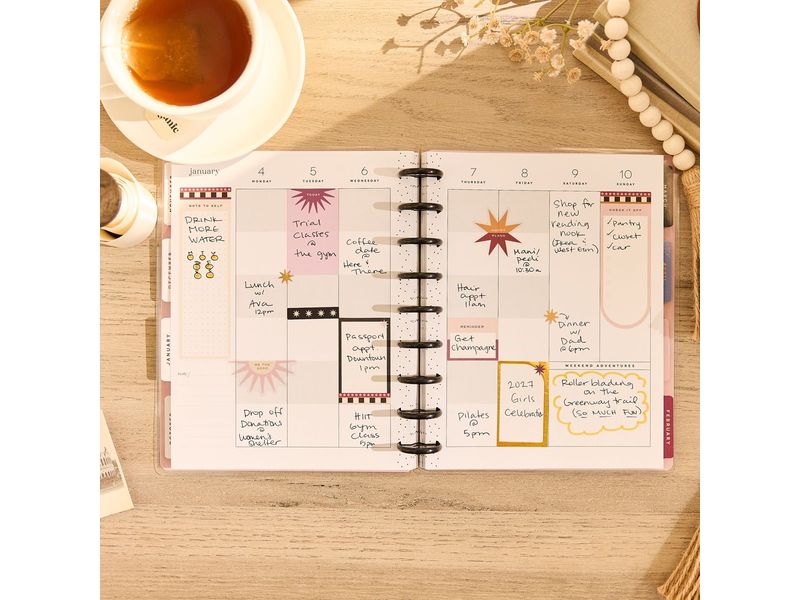 january
4
MONDAY
5
TUESDAY
6
WEDNESDAY
7
THURSDAY
8
FRIDAY
9
SATURDAY
10
SUNDAY
NOTE TO SELF
DRINK
MORE
WATER
Lunch
w/
Ava
12pm
Drop off
Donations
@
Women's
Shelter
TODAY
Trial
Classes
@
the gym
Coffee
date
@
Here &
There
Passport
appt
Downtown
1pm
HIIT
Gym
Class
5pm
Hair
appt
11am
REMINDER
Get
Champagne
Pilates
@
5pm
PLANS
Mani/
pedi @
10:30a
2027
Girls
Celebration
Shop for
new
reading
nook
(Ikea &
West elm)
Dinner
w/
Dad
@ 6pm
CHECK IT OFF
✓pantry
✓closet
✓car
WEEKEND ADVENTURES
Roller blading
on the
Greenway trail
(SO MUCH FUN)
DECEMBER
JANUARY
FEBRUARY
MARCH